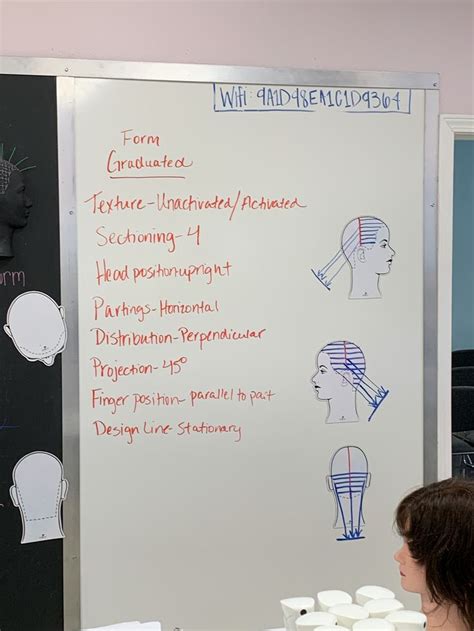 Wifi: 9A1D98EA1C1D9364
Form
Graduated
Texture-Unactivated/Activated
Sectioning-4
Head position-upright
Partings-Horizontal
Distribution-Perpendicular
Projection-45°
Finger position- parallel to part
Design Line-Stationary